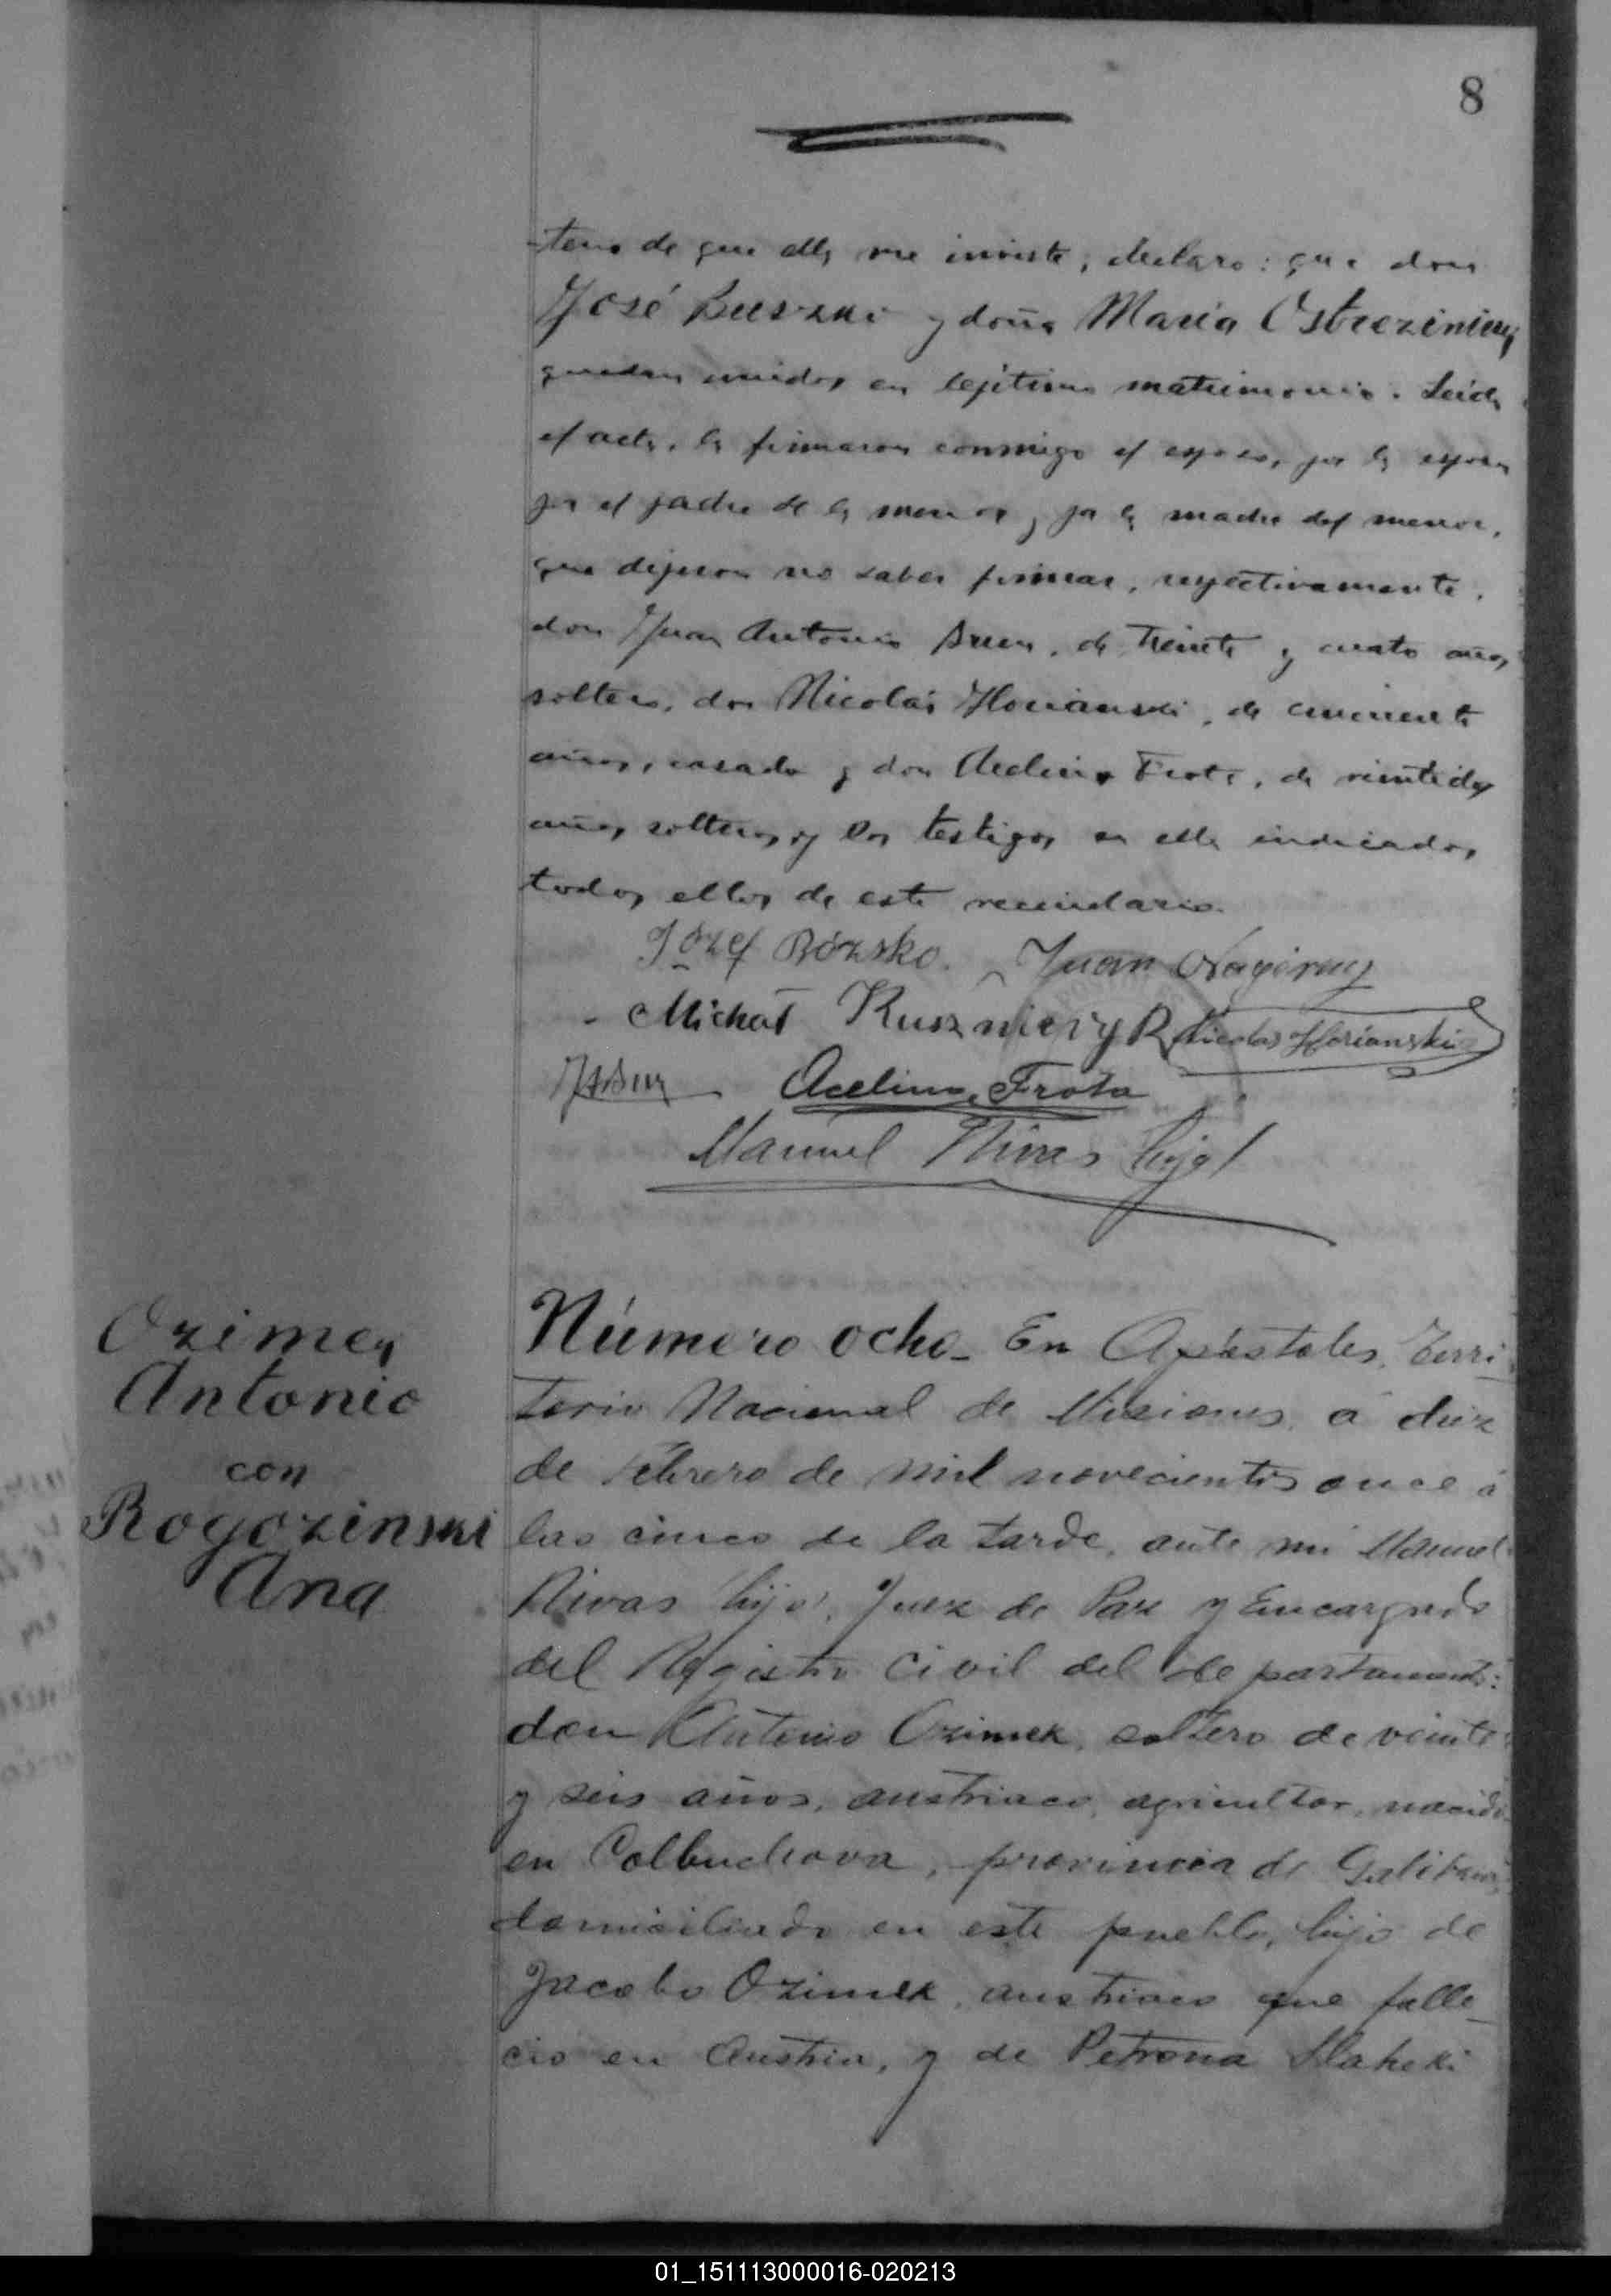 8
de que ella me inviste, declaro: que don
José Buszki y doña María
quedan unidos en lejítimo matrimonio. Leida
el acta, la firmaron conmigo el esposo, por la esposa
por el padre de la menor y por la madre del menor,
que dijeron no saber firmar, respectivamente,
don Juan Antonio de treinta y cuatro años,
soltero, don Nicolás Horianski, de cincuenta
años, casado y don Acelino Frota, de veintidos
años, soltero, y los testigos en ella indicados,
todos ellos de este vecindario.
Józef Bózsko. Juan Nagirnej
Michał Kuszniery Nicolas Horianski
Acelino Frota
Manuel Rivas hijo
Ozimek
Antonio
con
Rogozinski
Ana
Número ocho_ En Apóstoles, Terri
torio Nacional de Misiones, á diez
de Febrero de mil novecientos once á
las cinco de la tarde, ante mi Manuel
Rivas hijo, Juez de Paz y Encargado
del Registro Civil del departamento:
don Antonio Ozimek, soltero de veinte
y seis años, austriaco, agricultor, nacido
en Colbuchova, provincia de
domiciliado en este pueblo, hijo de
Jacobo Ozimek, austriaco que falle_
cio en Austria, y de Petrona
01_151113000016-020213